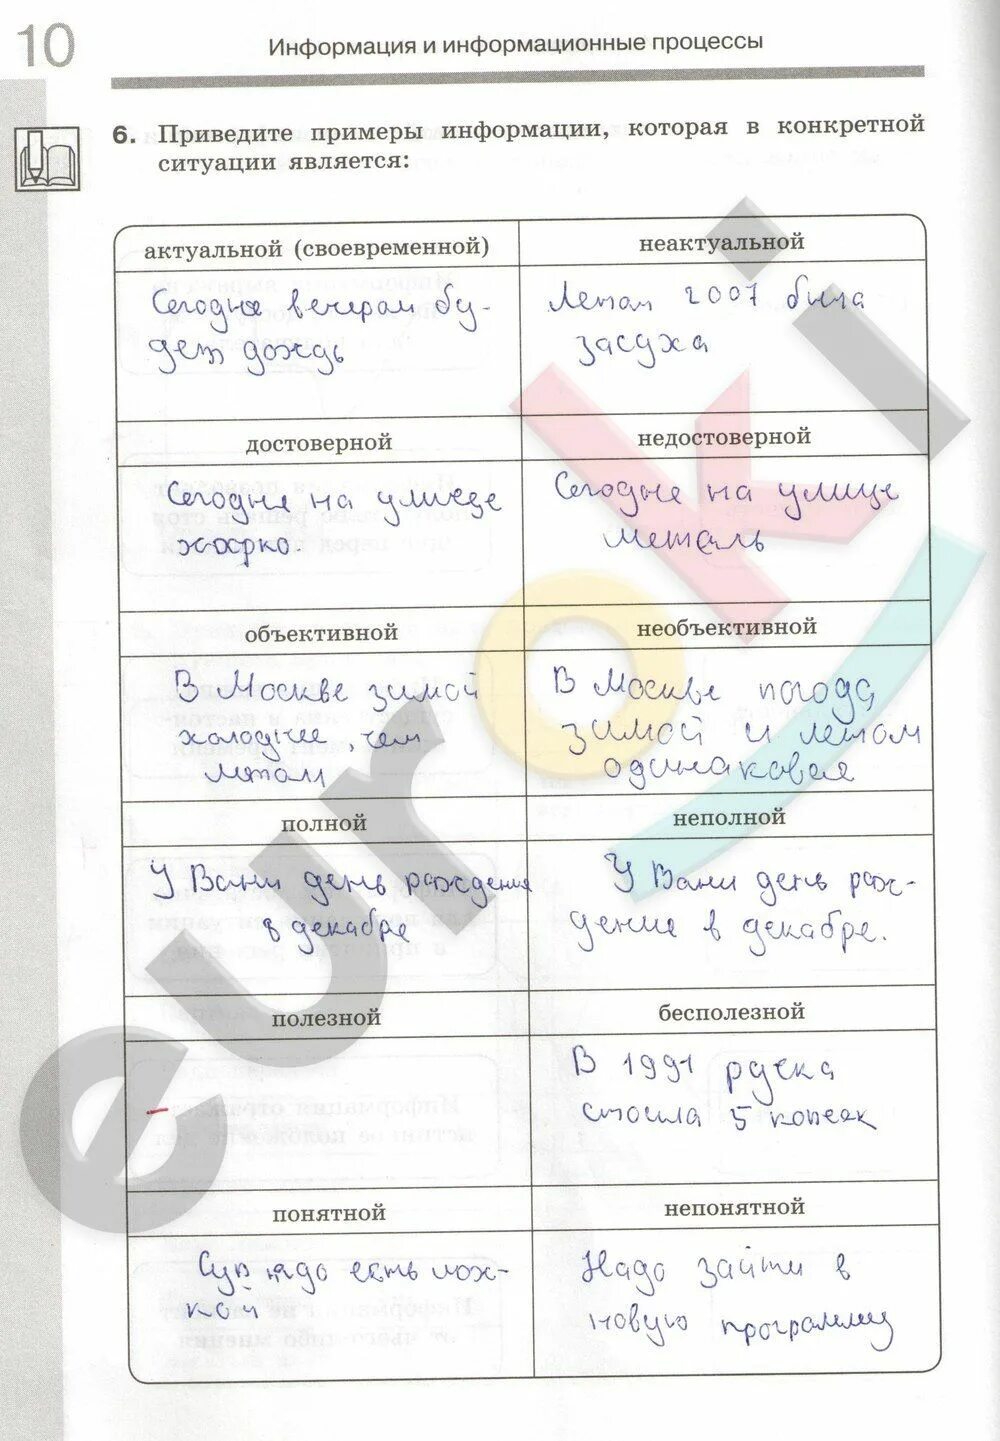 10
Информация и информационные процессы
6. Приведите примеры информации, которая в конкретной
ситуации является:
актуальной (своевременной)
неактуальной
Сегодня вечером бу-
дет дождь
Летом 2007 была
засуха
достоверной
недостоверной
Сегодня на улице
жарко.
Сегодня на улице
метель
объективной
необъективной
В Москве зимой
холоднее, чем
летом
В Москве погода
зимой и летом
одинаковая
полной
неполной
У Вани день рождения
в декабре
У Вани день рож-
дение в декабре.
полезной
бесполезной
В 1991 ручка
стоила 5 копеек
понятной
непонятной
Суп надо есть лож-
кой
Надо зайти в
новую программу
euroki